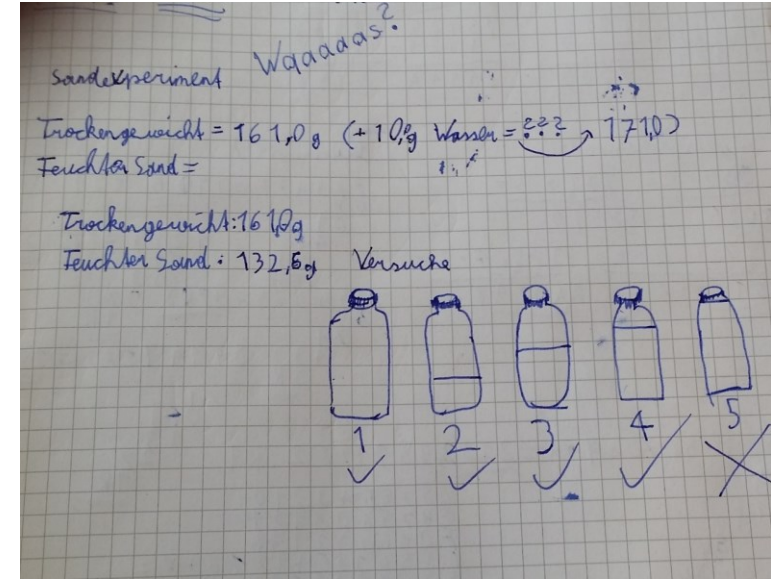 Waaaaas?
Sandexperiment
Trockengewicht = 161,0g (+ 10,0g Wasser = ??? 171,0)
Feuchter Sand =
Trockengewicht: 161,0g
Feuchter Sand: 132,6g Versuche
1 2 3 4 5